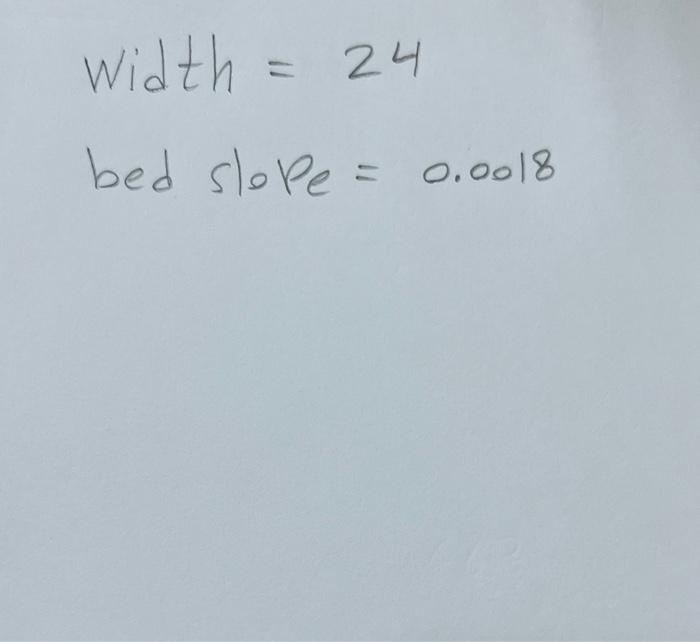 Width = 24
bed slope = 0.0018